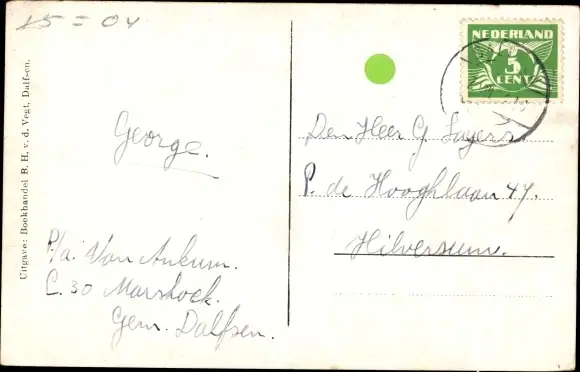 25 = 04
Uitgave: Boekhandel B. H. v. d. Vegt, Dalfsen.
George.
P/a. Van Ankum.
C. 30 Marshoek.
Gem. Dalfsen.
NEDERLAND
5
CENT
Den Heer G
P. de Hooghlaan 47.
Hilversum.